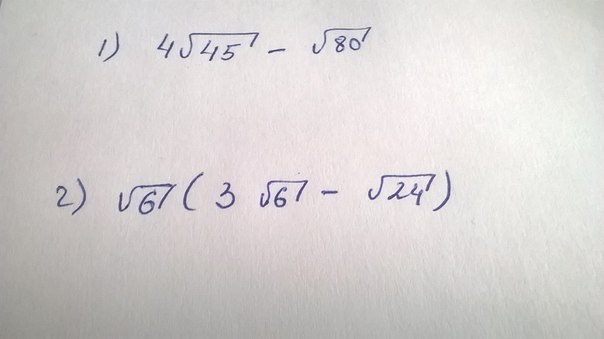 1) 4√45 - √80
2) √6 (3 √6 - √24)